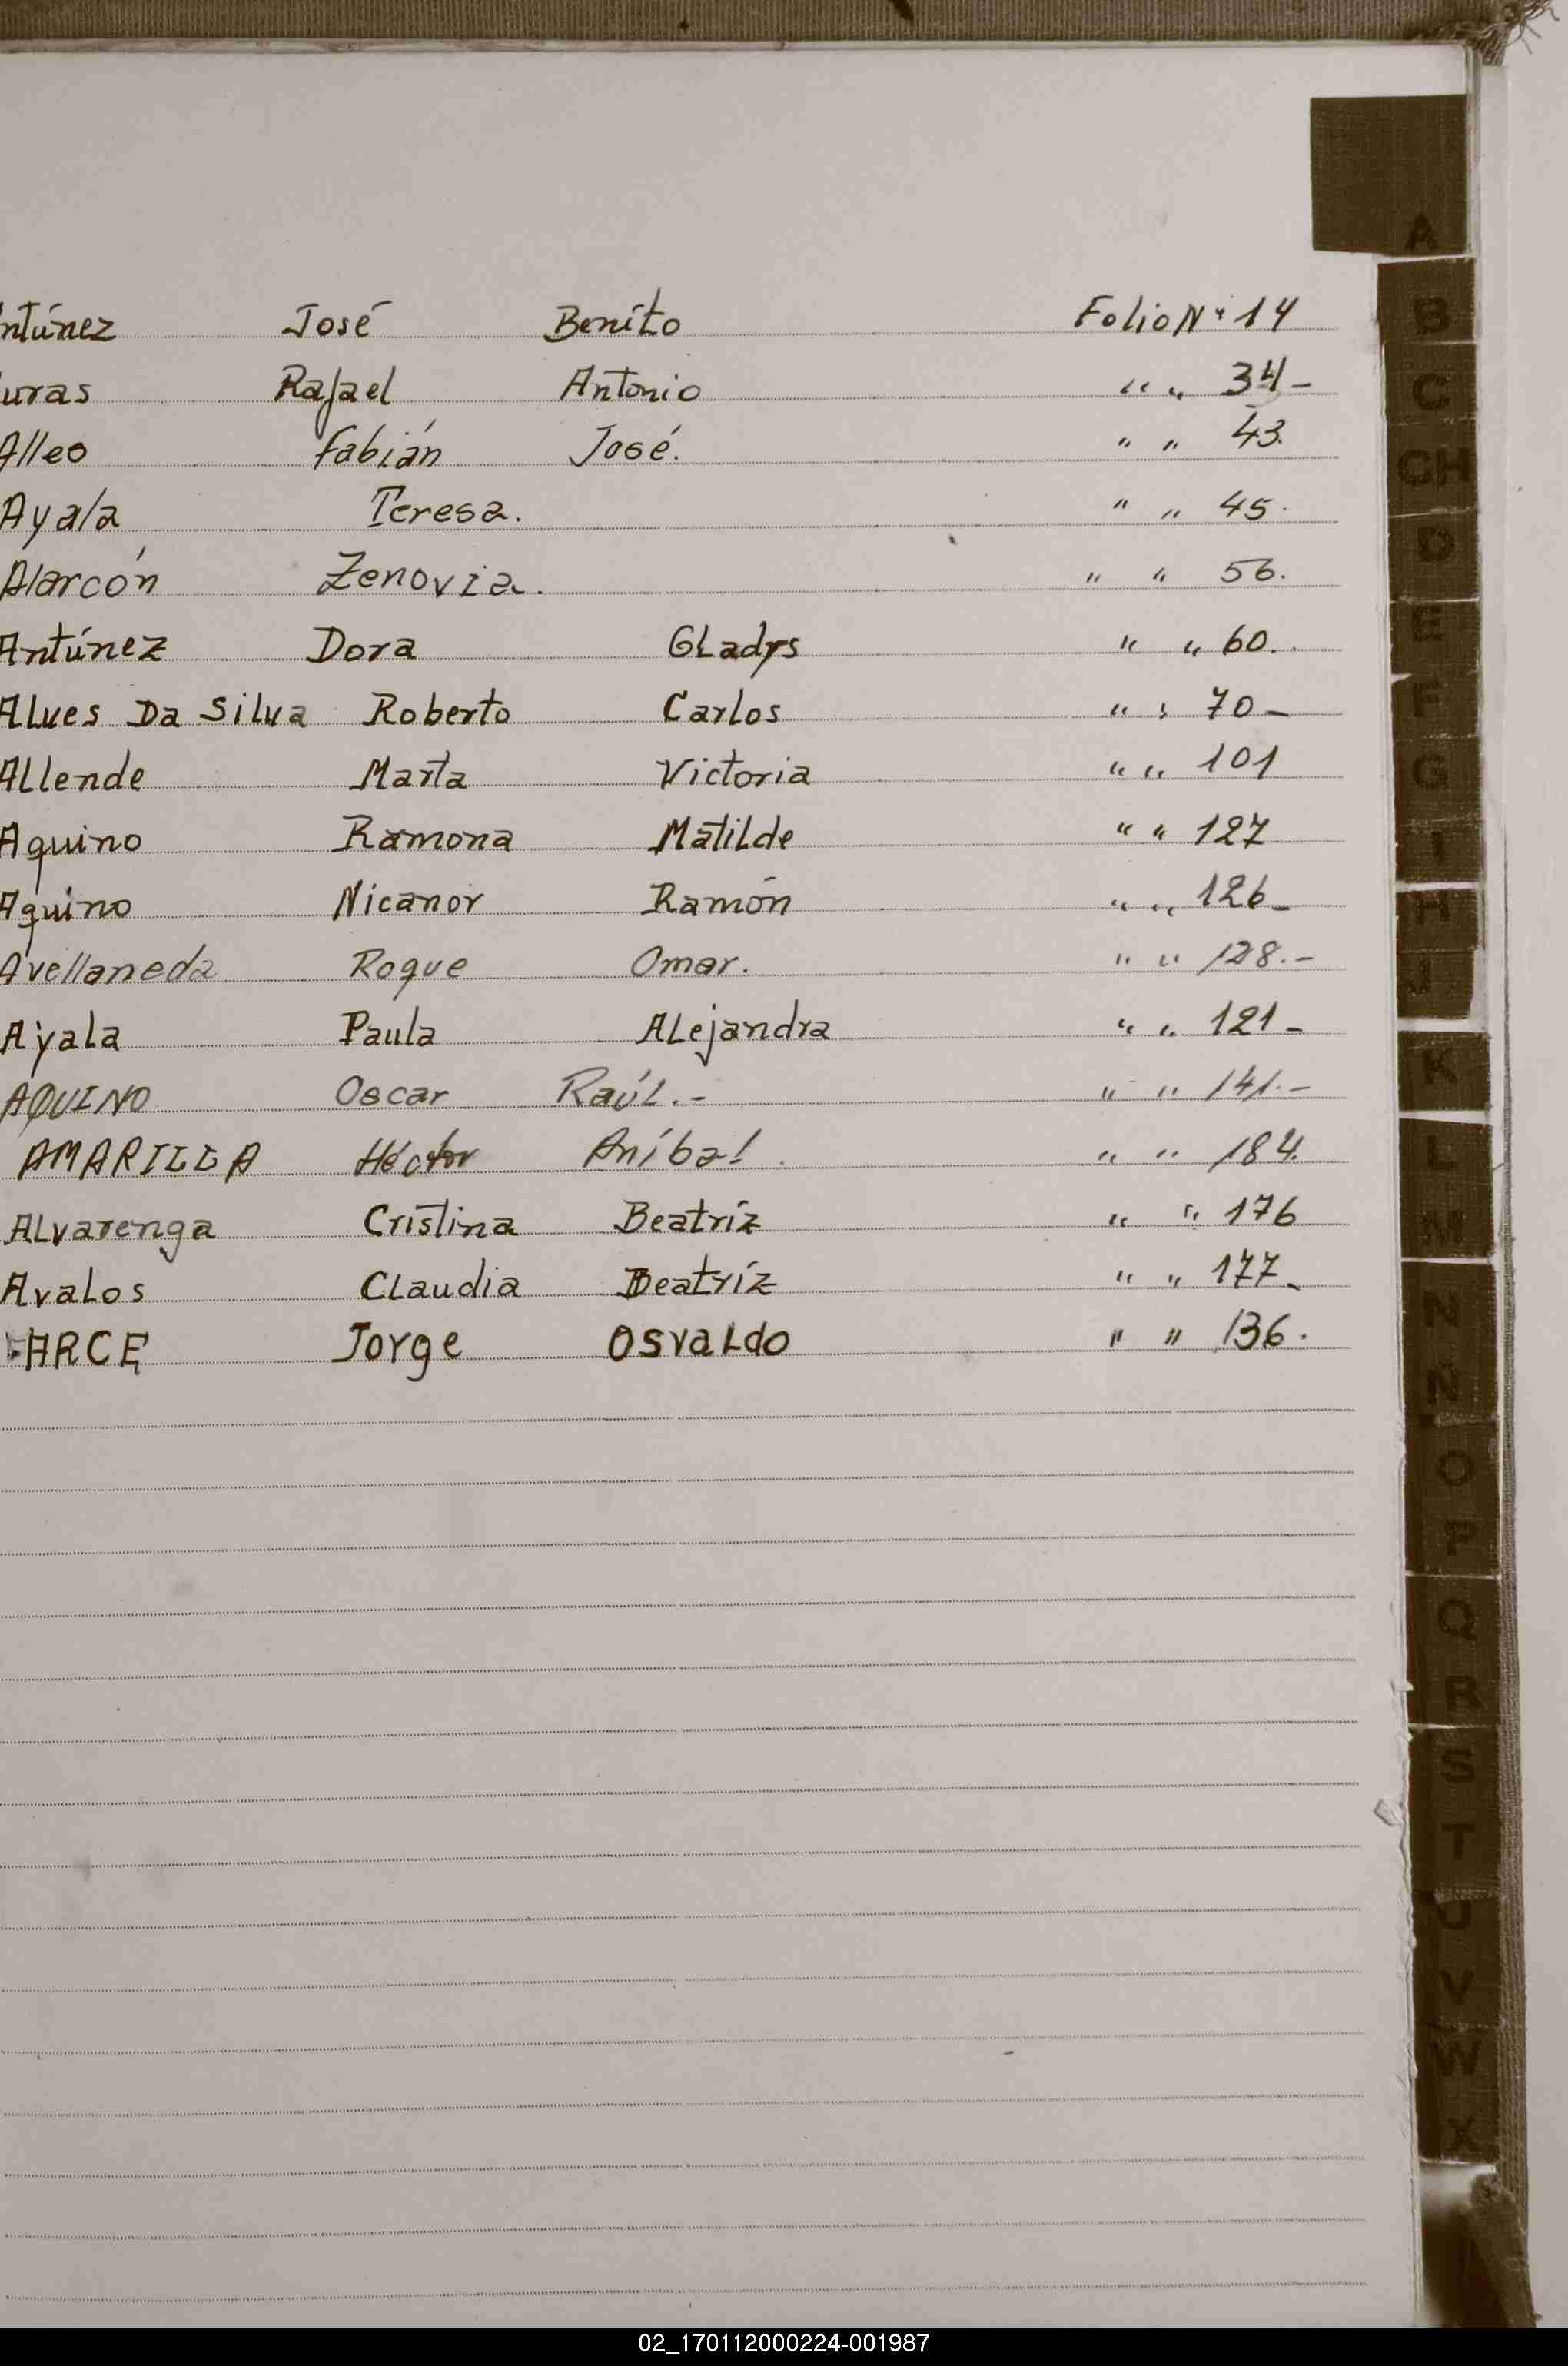 ntúnez José Benito Folio Nº 14
uras Rafael Antonio " " 34-
Alleo Fabián José. " " 43.
Ayala Teresa. " " 45.
Alarcón Zenovia. " " 56.
Antúnez Dora GLadys " " 60.
ALves Da Silva Roberto Carlos " " 70-
ALLende Marta Victoria " " 101
Aquino Ramona MatiLde " " 127
Aquino Nicanor Ramón " " 126-
Avellaneda Roque Omar. " " 128.-
Ayala Paula ALejandra " " 121-
AQUINO Oscar Raúl.- " " 141.-
AMARILLA Héctor Aníbal. " " 184.
ALvarenga Cristina Beatríz " " 176
AvaLos CLaudia Beatríz " " 177-
ARCE Jorge OsvaLdo " " 136.
A
B
C
CH
D
E
F
G
I
H
J
K
L
M
N
Ñ
O
P
Q
R
S
T
U
V
W
X
02_170112000224-001987